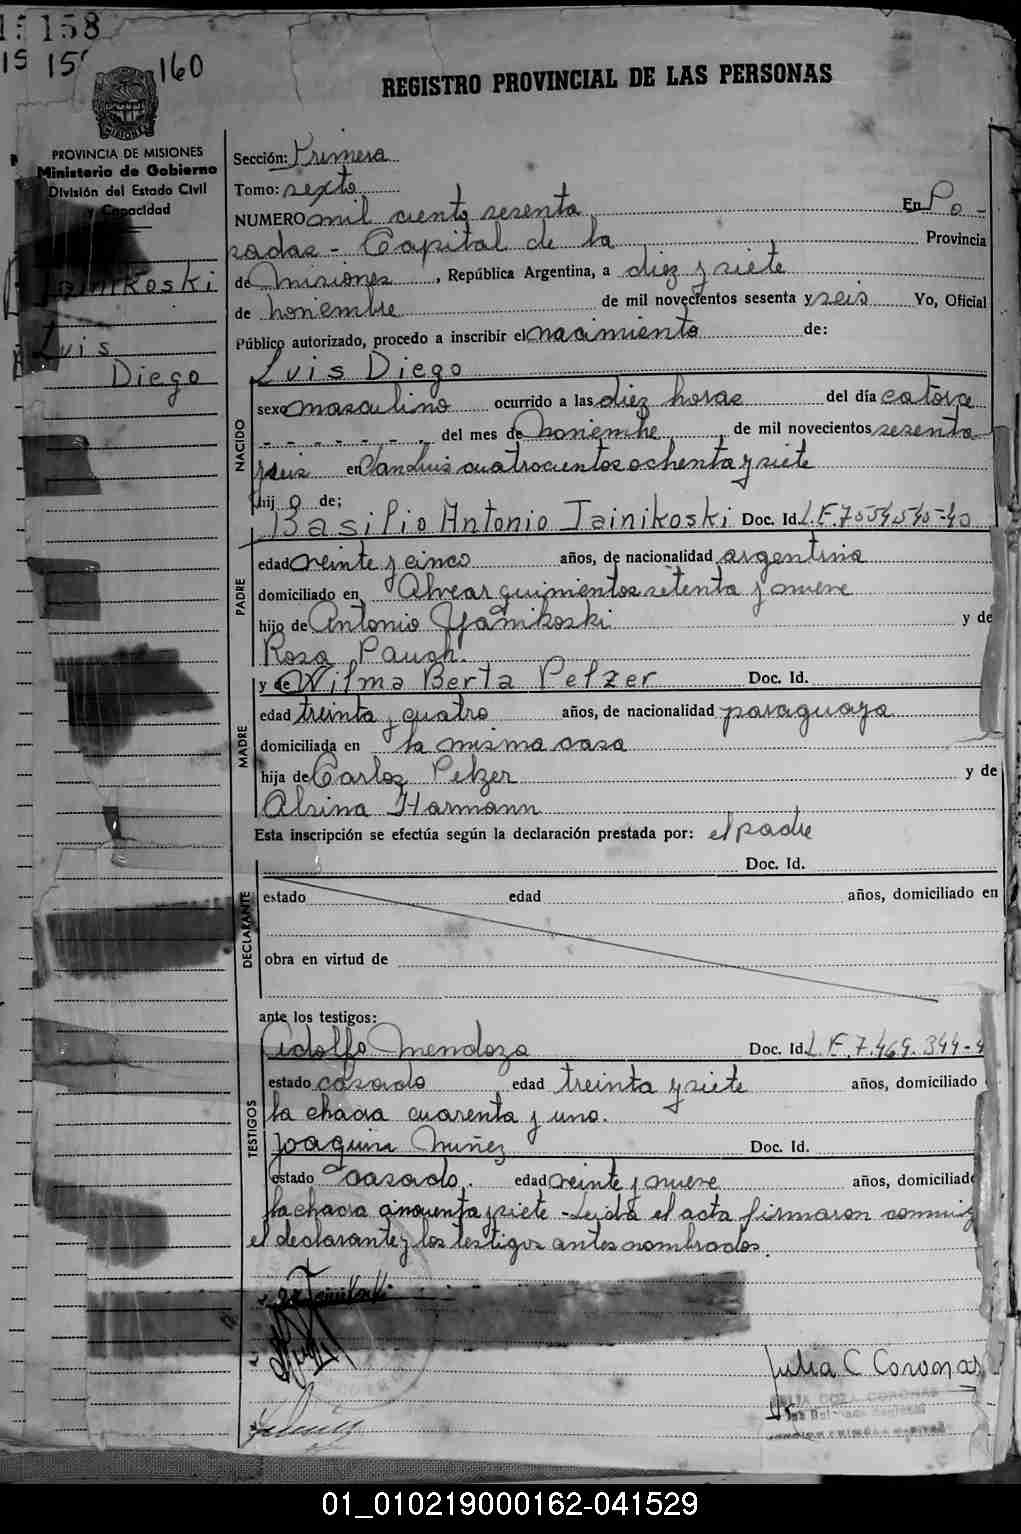 15 158
15 15 160
REGISTRO PROVINCIAL DE LAS PERSONAS
MISIONES
PROVINCIA DE MISIONES
Ministerio de Gobierno
División del Estado Civil
y Capacidad
Jainikoski
Luis
Diego
Sección: Primera
Tomo: sexto
NUMERO mil ciento sesenta En Po-
sadas - Capital de la Provincia
de Misiones, República Argentina, a diez y siete
de noviembre de mil novecientos sesenta y seis Yo, Oficial
Público autorizado, procedo a inscribir el nacimiento de:
Luis Diego
NACIDO
sexo masculino ocurrido a las diez horas del día catorce
- - - - - - - del mes de noviembre de mil novecientos sesenta
y seis en San Luis cuatrocientos ochenta y siete
hijo de;
Basilio Antonio Jainikoski Doc. Id. L.E. 7.054.540-40
PADRE
edad veinte y cinco años, de nacionalidad argentina
domiciliado en Alvear quinientos setenta y nueve
hijo de Antonio Yanikoski y de
Rosa Pauch.
y de Wilma Berta Pelzer Doc. Id.
MADRE
edad treinta y cuatro años, de nacionalidad paraguaya
domiciliada en la misma casa
hija de Carlos Pelzer y de
Alsina Harmann
Esta inscripción se efectúa según la declaración prestada por: el padre
Doc. Id.
DECLARANTE
estado edad años, domiciliado en
obra en virtud de
ante los testigos:
Adolfo Mendoza Doc. Id. L.E. 7.469.344-4
TESTIGOS
estado casado edad treinta y siete años, domiciliado
la chacra cuarenta y uno.
Joaquin Nuñez Doc. Id.
estado casado. edad veinte y nueve años, domiciliado
la chacra cincuenta y siete - Leida el acta firmaron conmigo
el declarante y los testigos antes nombrados.
Julia C Coronas
01_010219000162-041529